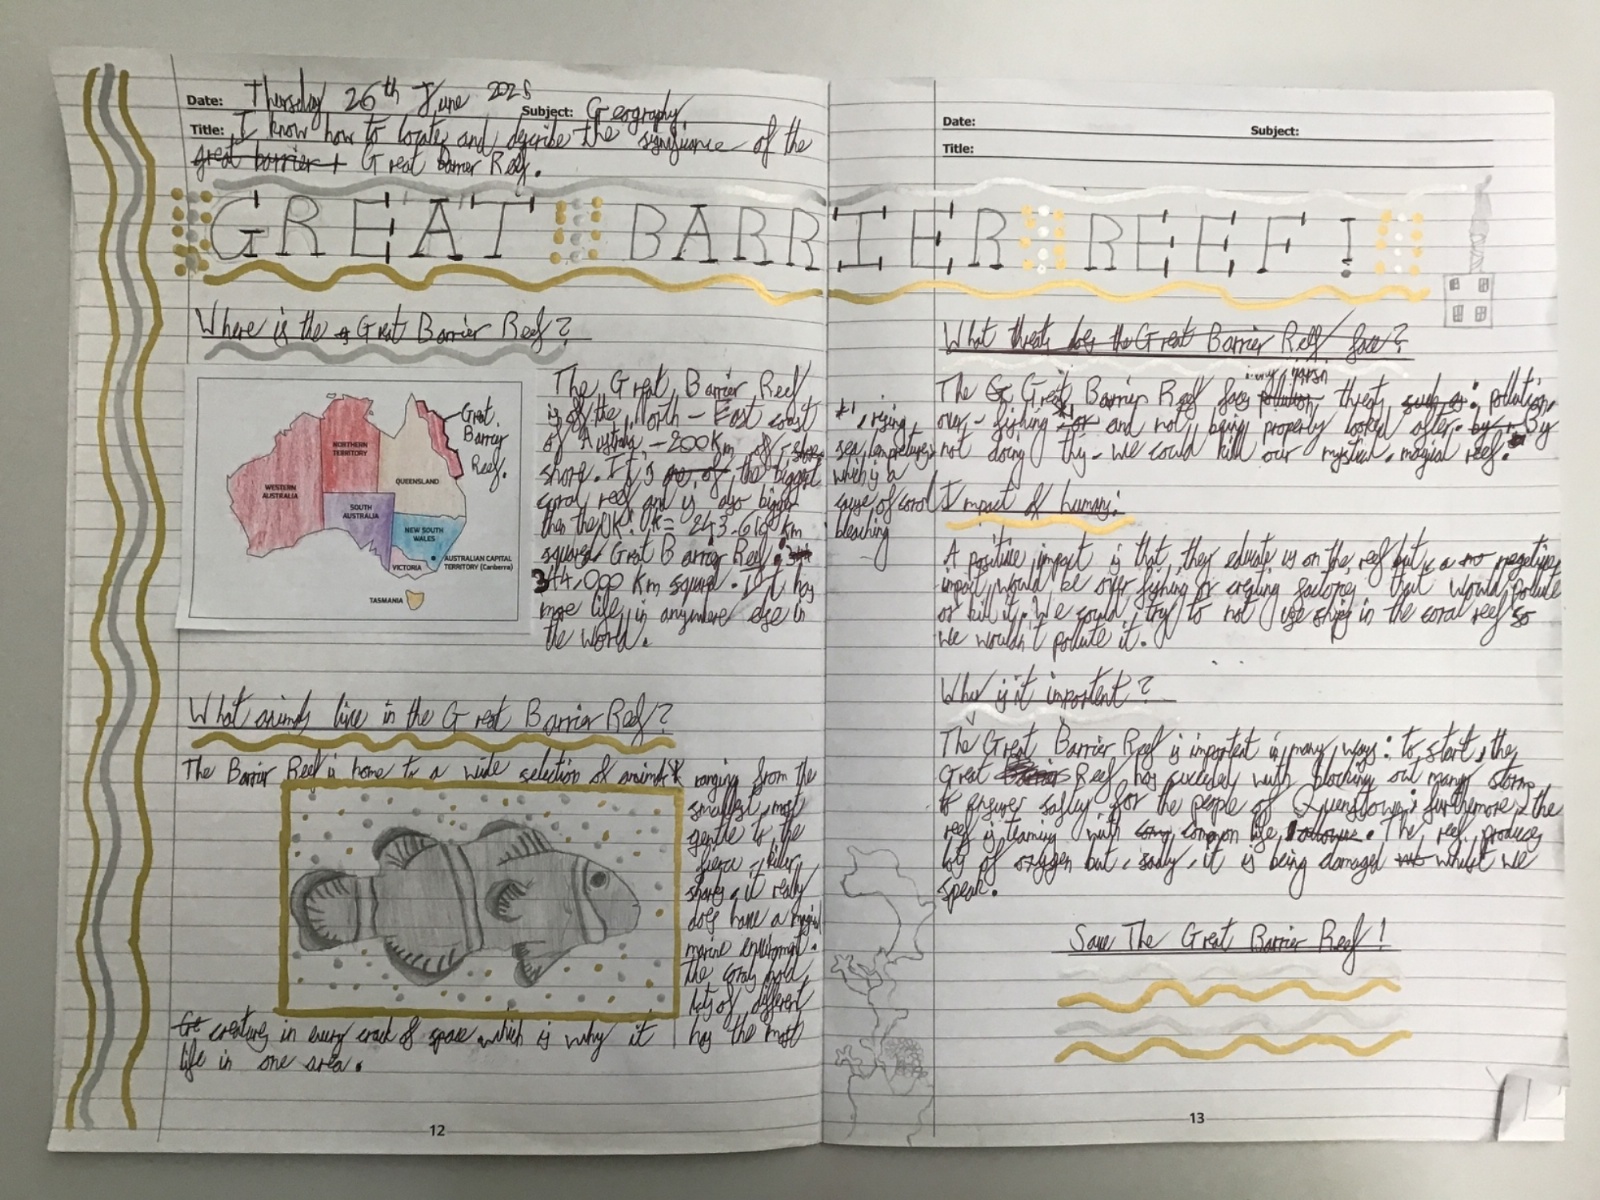 Date: Thursday 26th June 2025 Subject: Geography
Title: I know how to locate and describe the significance of the
great barrier r Great Barrier Reef.
GREAT BARRIER REEF!
Where is the Great Barrier Reef?
WESTERN AUSTRALIA
NORTHERN TERRITORY
QUEENSLAND
SOUTH AUSTRALIA
NEW SOUTH WALES
VICTORIA
AUSTRALIAN CAPITAL TERRITORY (Canberra)
TASMANIA
Great
Barrier
Reef.
The Great Barrier Reef
is of the North - East coast
of Australia - 200Km of
shore. It's the biggest
coral reef and is also bigger
then the UK! UK= 243.610 Km
squared Great Barrier Reef:
344.000 Km squared. It has
more life in anywhere else in
the world.
What animals live in the Great Barrier Reef?
The Barrier Reef is home to a wide selection of animals ranging from the
smallest, most
gentle to the
fierce killer
sharks, it really
does have a magical
marine enviroment.
The corals hold
lots of different
creatures in every crack of space which is why it has the most
life in one area.
12
Date: Subject:
Title:
What threats does the Great Barrier Reef face?
The Great Barrier Reef faces many threats such as: pollution,
over-fishing *1 or and not being properly looked after. By
not doing this we could kill our mystical, magical reef.
*1, rising
sea tempretures
which is a
cause of coral
bleaching
Impact of humans:
A positive impact is that they educate us on the reef but a negative
impact would be over fishing or creating factories that would pollute
or kill it. We could try to not use ships in the coral reef so
we wouldn't pollute it.
Why is it important?
The Great Barrier Reef is important in many ways: to start, the
Great Barrier Reef has succeded with blocking out many storms
to ensure safley for the people of furthermore, the
reef is teaming with common life. The reef produces
lots of oxygen but, sadly, it is being damaged whilst we
speak.
Save The Great Barrier Reef!
13